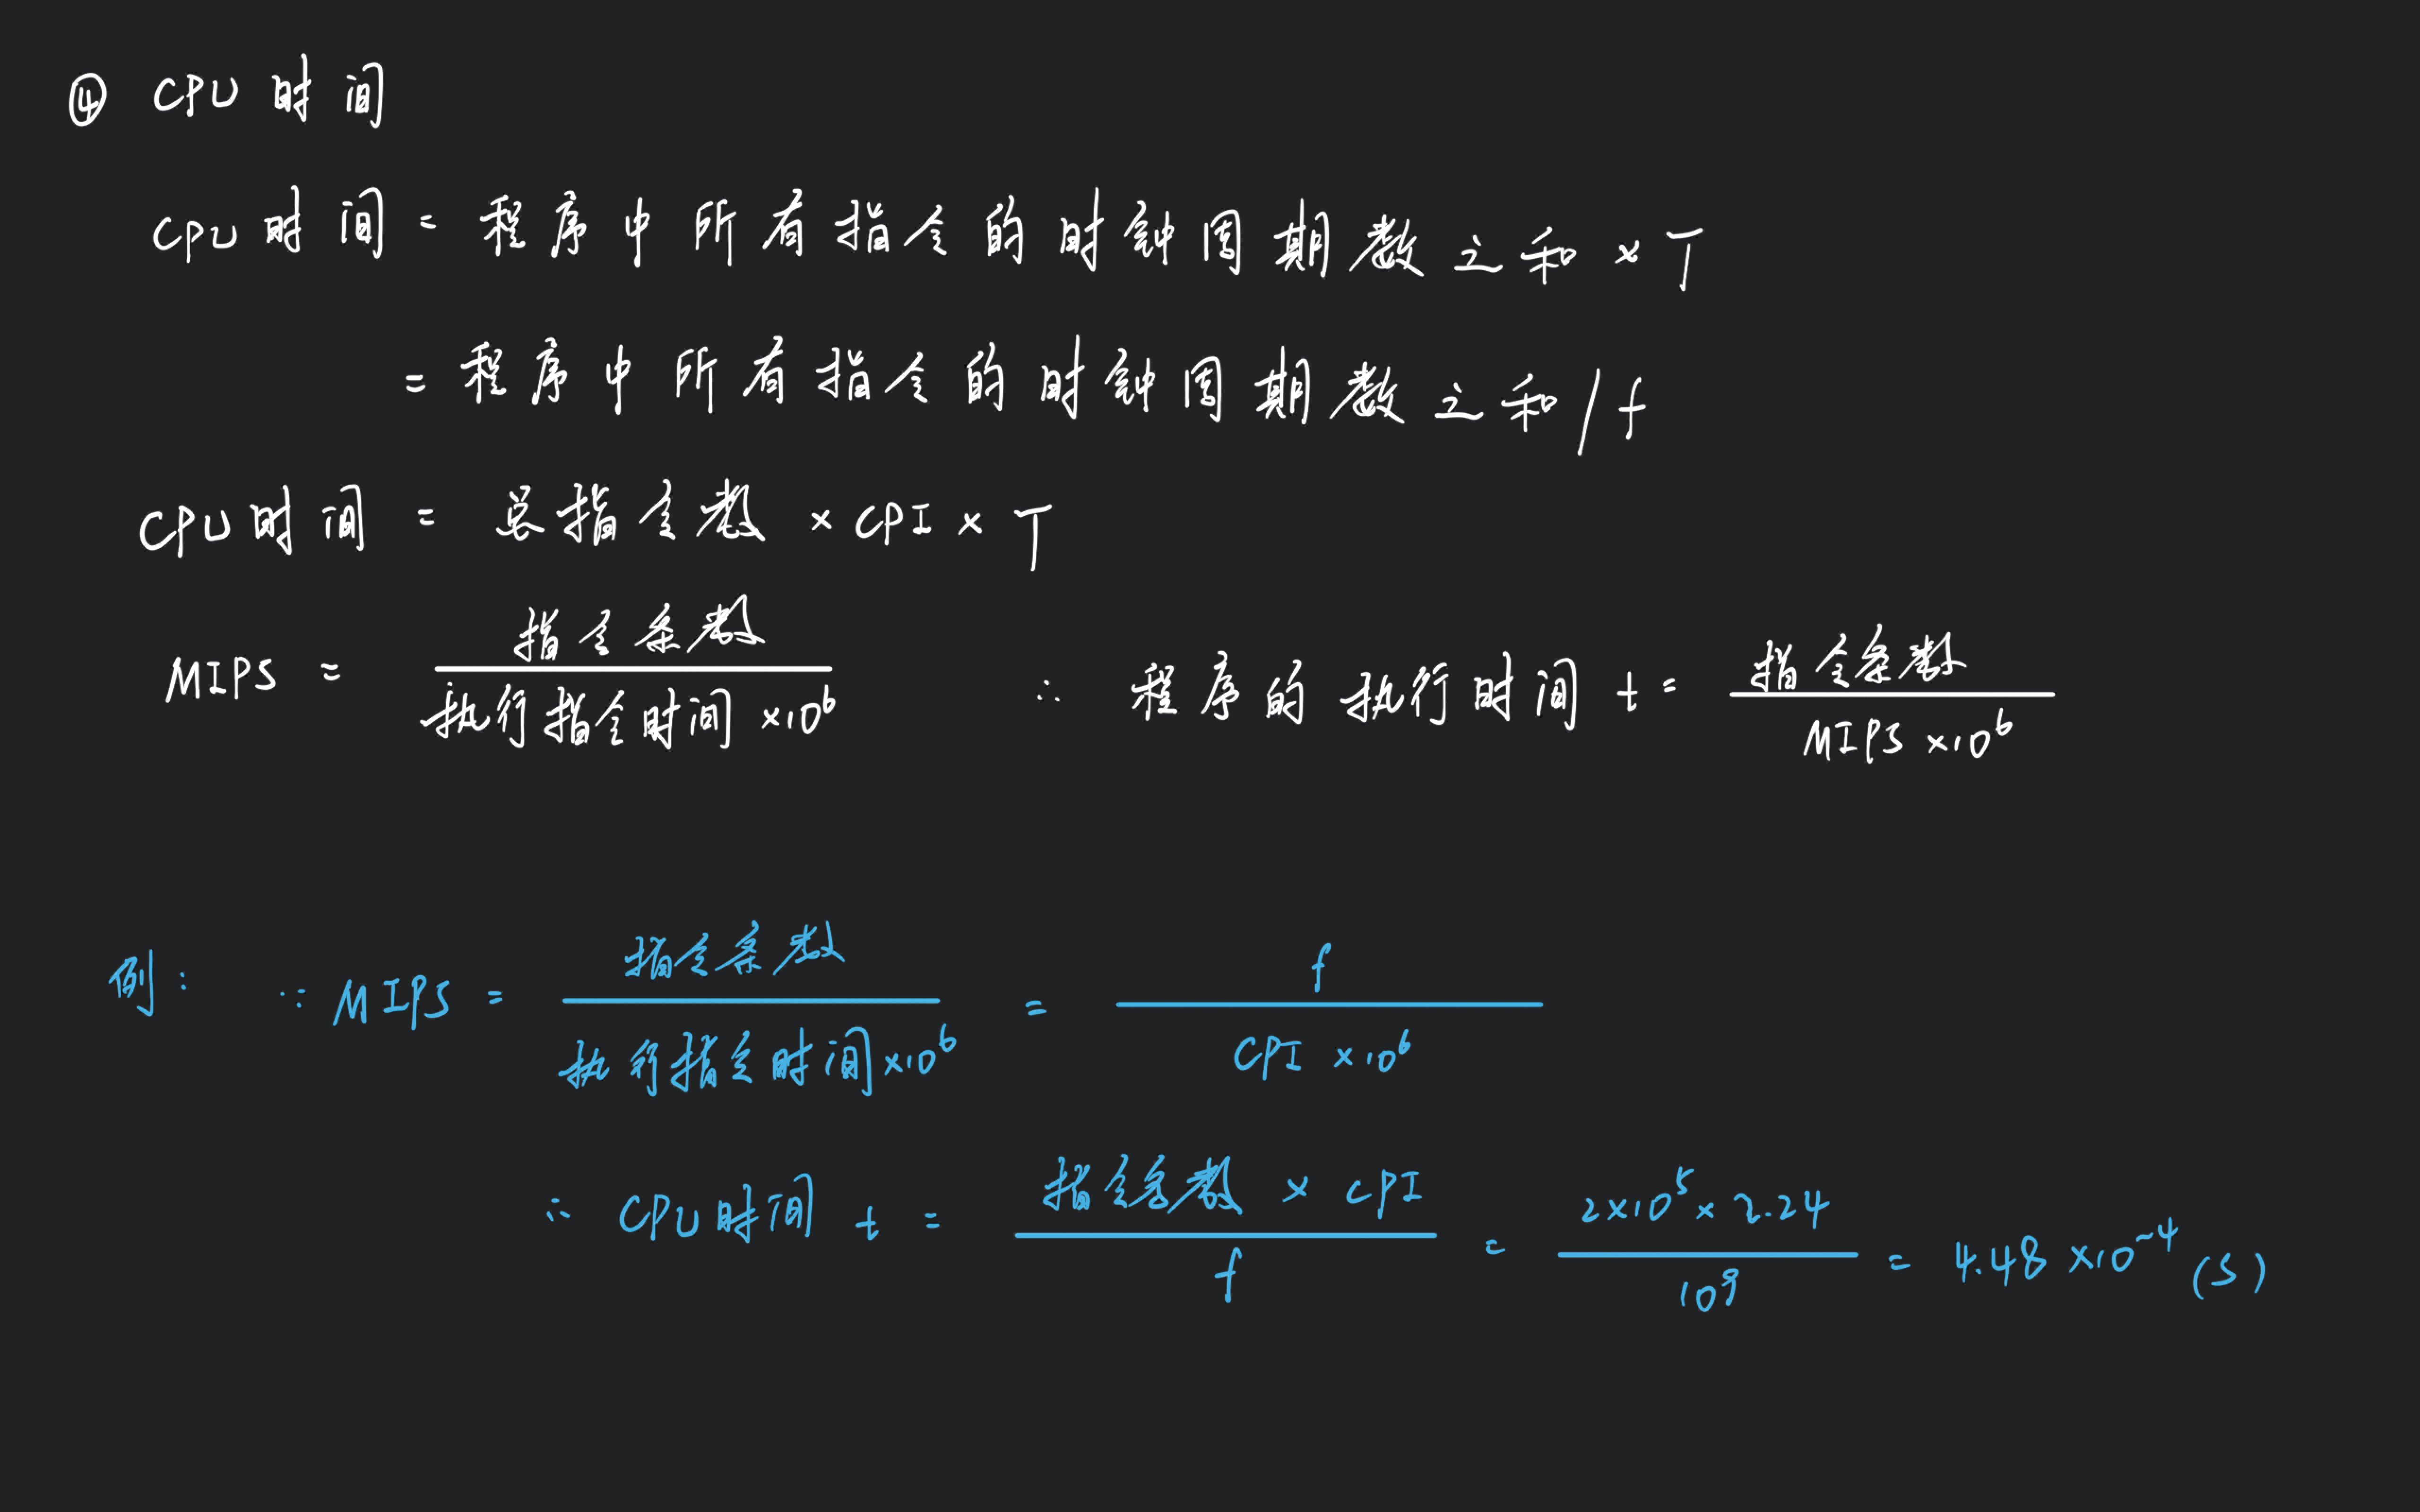 ④ CPU 时间
CPU 时间 = 程序中所有指令的时钟周期数之和 × T
= 程序中所有指令的时钟周期数之和 / f
CPU 时间 = 总指令数 × CPI × T
MIPS = 指令条数 / 执行指令时间 ×10⁶ ∴ 程序的执行时间 t = 指令条数 / MIPS ×10⁶
例: ∵ MIPS = 指令条数 / 执行指令时间 ×10⁶ = f / CPI ×10⁶
∴ CPU 时间 t = 指令总数 × CPI / f = 2×10⁵ × 2.24 / 10⁹ = 4.48 ×10⁻⁴ (s)